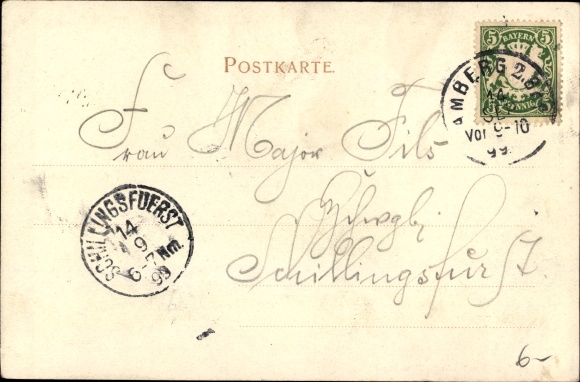 5 BAYERN 5
PFENNIG
POSTKARTE.
AMBERG 2.B.
Vor 9-10
99.
Frau Major Fils
SCHILLINGSFUERST
14
9
6-7 Nm.
99
Schillingsfürst.
6-